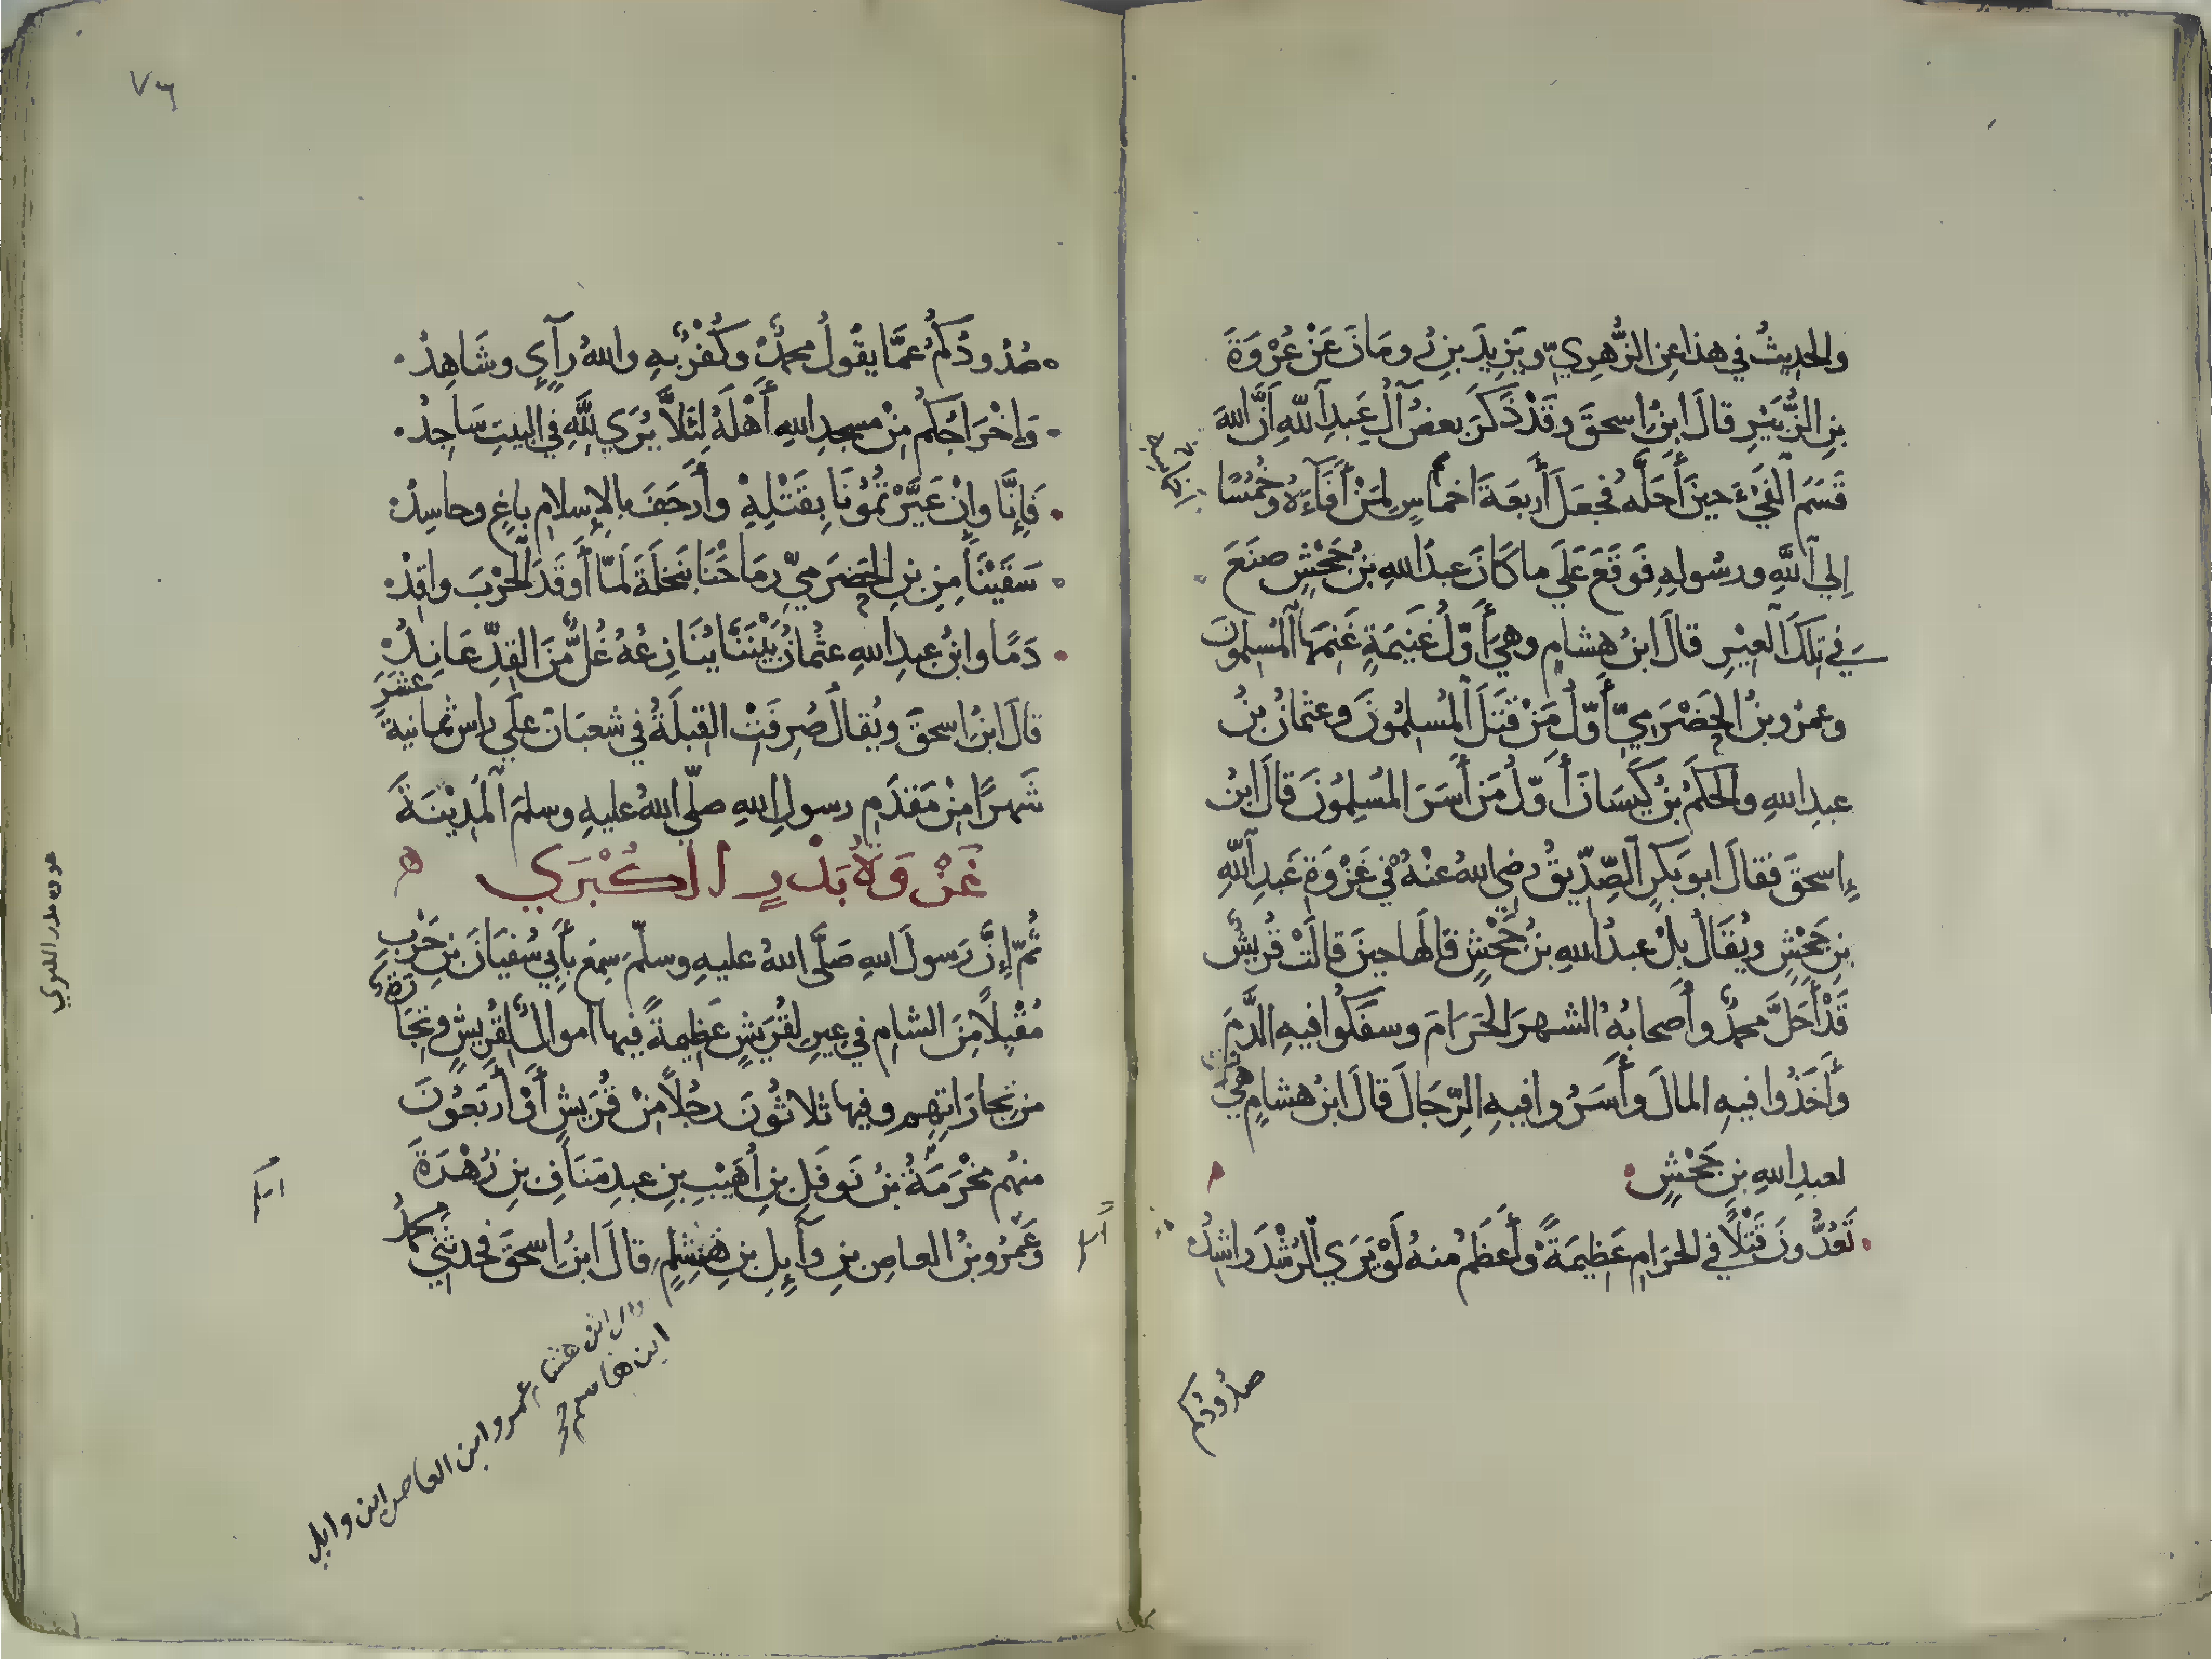 والحديثُ في هذا عن الزُّهريِّ ويَزيدَ بنِ رُومَانَ عَنْ عُرْوَةَ
بنِ الزُّبَيْرِ قالَ ابنُ اسحقَ وقَدْ ذَكَرَ بعضُ آلِ عَبدِ اللهِ أنَّ اللهَ
قَسَمَ الفَيْءَ حينَ أَحَلَّه فجعَلَ أَربعَةَ اخماسٍ لِمَنْ أَفَآءَهُ وخُمُسًا
إلى اللهِ ورسُولِهِ فَوقَعَ عَلَي ما كانَ عبدُ اللهِ بنُ جَحْشٍ صنَعَ
في تلكَ العِيْرِ قالَ ابنُ هشامٍ وهيَ أَوّلُ غَنِيمَةٍ غَنِمَها المُسلمونَ
وعمرُو بنُ الحَضْرَميِّ أَوّلُ مَنْ قَتَلَ المُسلِمُونَ وعثمانُ بنُ
عبدِ اللهِ والحَكَمُ بنُ كَيسَانَ أَوّلُ مَن أَسَرَ المُسلِمُونَ قالَ ابنُ
إسحقَ فقالَ ابو بَكرٍ الصِّدّيقُ رضي اللهُ عنْهُ في غَزْوَةِ عَبدِ اللهِ
بنِ جَحْشٍ ويُقَالُ بلْ عبدُ اللهِ بنُ جَحْشٍ قالَها حينَ قالَتْ قُريشٌ
قَدْ أَحَلَّ محمدٌ وأَصحابُهُ الشهرَ الحَرَامَ وسفَكُوا فيهِ الدَّمَ
وأَخَذُوا فيهِ المالَ وأَسَرُوا فيهِ الرِّجَالَ قالَ ابنُ هشامٍ هيَ
لعبدِ اللهِ بنِ جَحْشٍ
تَعُدُّونَ قَتْلًا في الحرَامِ عَظِيمَةً وأَعظَمُ منهُ لَوْ يَرَي الرُشْدَ راشِدُ
صدُودُكم
٧٦
صُدُودُكُمُ عمَّا يقُولُ محمدٌ وكُفْرٌ بهِ واللهُ رآءٍ وشَاهِدُ
وَإخْرَاجُكُم مِنْ مسجدِ اللهِ أَهْلَهُ لِئَلَّا يُرَي للَّهِ في البيتِ سَاجِدُ
فَإنَّا وإنْ عَيَّرْتُمُونَا بِقَتْلِهِ وأَرجَفَ بالإسلامِ باغٍ وحاسِدُ
سَقَيْنَا مِنِ بنِ الحَضرَميِّ رِمَاحَنَا بنَخلَةَ لَمَّا أَوقَدَ الحَرْبَ واقِدُ
دَمًا وابنُ عبدِ اللهِ عثمانُ بَيْنَنَا يُنَازِعُهُ غُلٌّ مِّنَ القِدِّ عَانِدُ
قالَ ابنُ اسحقَ ويُقالُ صُرِفَتْ القِبلَةُ في شعبَانَ علَي راس ثمانيةَ عشَرَ
شَهرًا مِنْ مَقدَمِ رسولِ اللهِ صلّي اللهُ عليهِ وسلمَ المَدِيْنَةَ
غَزْوَةُ بَدْرٍ الكُبْرَي
ثُمّ إنَّ رَسولَ اللهِ صَلَّي اللهُ عليهِ وسلّمَ سمِعَ بأَبي سُفيَانَ بنِ حَرْبٍ
مُقْبِلًا مِنَ الشامِ في عِيرٍ لقُرَيشٍ عَظِيمةً فيها اموالٌ لقُرَيشٍ وتِجَارَةٌ
من تجارَاتِهِم وفيها ثلاثُونَ رجُلًا مِنْ قُرَيشٍ أَوْ أَربَعُونَ
منهُم مَخْرَمَةُ بنُ نَوفَلِ بنِ أُهَيْبِ بنِ عبدِ مَنَافِ بنِ زُهْرَةَ
وَعَمرُو بنُ العاصِ بنِ وآئِلِ بنِ هِشَامٍ قالَ ابنُ اسحقَ فحدثَني محمدُ
قال ابن هشام عمرو ابن العاص ابن وايل
ابن هاشم
غزوه بدر الكبري